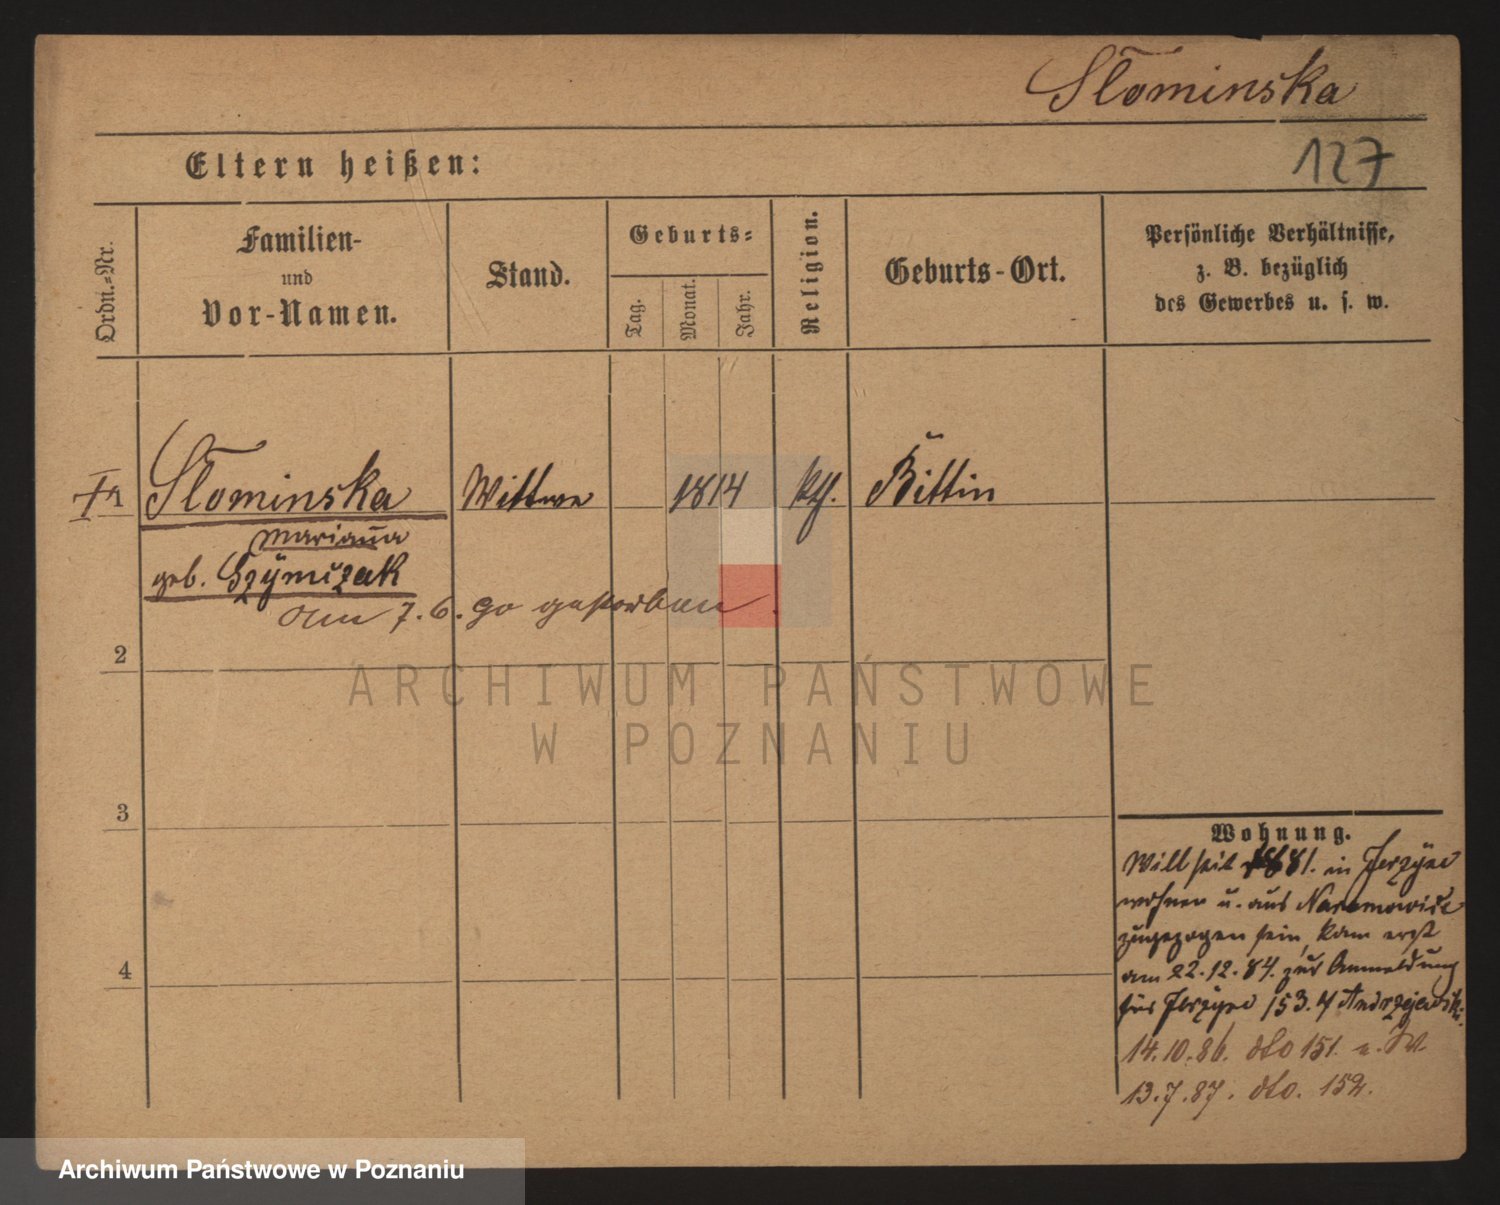 Słominska
127
Eltern heißen:
Ordn.-Nr.
Familien-
und
Vor-Namen.
Stand.
Geburts-
Tag.
Monat.
Jahr.
Religion.
Geburts-Ort.
Persönliche Verhältnisse,
z. B. bezüglich
des Gewerbes u. s. w.
1 Słominska Wittwe 1814 kth. Bittin
Marianna
geb. Szymczak
Am 7.6.90 gestorben.
2
3
4
Wohnung.
Will seit 1881. in Jerzyce
wohnen u. aus Naramowice
zugezogen sein, kam erst
am 22.12.84. zur Anmeldung
für Jerzyce 153. Andrzejewski.
14.10.86. dto 151.
13.7.87. dto. 152.
ARCHIWUM PAŃSTWOWE
W POZNANIU
Archiwum Państwowe w Poznaniu